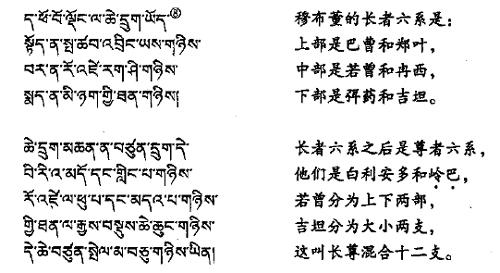 ད་ཕོ་བོ་ལྡོང་ལ་ཆེ་དྲུག་ཡོད་⑧
སྟོད་ན་སྤ་ཚབ་འབྲིང་ཡས་གཉིས་
བར་ན་རོ་འཛེ་རག་ཤི་གཉིས་
སྨད་ན་མི་ཉག་གྱི་ཐན་གཉིས།
ཆེ་དྲུག་མཚན་ན་བཙུན་དྲུག་དེ་
བི་རི་འ་མདོ་དང་གླིང་པ་གཉིས་
རོ་འཛེ་ལ་ཕུ་པ་དང་མདའ་པ་གཉིས་
གྱི་ཐན་ལ་རྒྱས་བསྡུས་ཆེ་ཆུང་གཉིས་
དེ་ཆེ་བཙུན་སྤེལ་མ་བཅུ་གཉིས་ཡིན།
穆布董的长者六系是：
上部是巴曹和郑叶，
中部是若曾和冉西，
下部是弭药和吉坦。
长者六系之后是尊者六系，
他们是白利安多和岭巴，
若曾分为上下两部，
吉坦分为大小两支，
这叫长尊混合十二支。